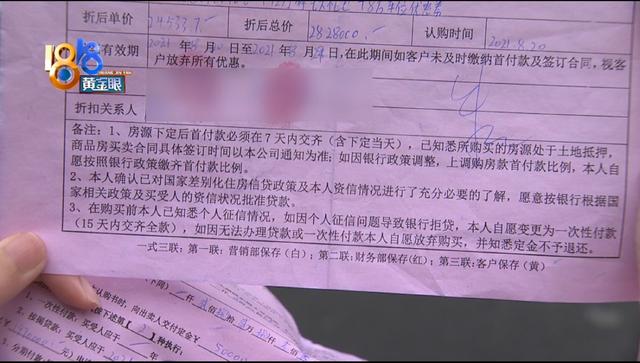 折后单价
24533.7
折后总价
2828000
认购时间
2021.8.20
有效期
2021年8月20日至2021年8月
日,在此期间如客户未及时缴纳首付款及签订合同,视客
户放弃所有优惠。
1818
黄金眼
折扣关系人
备注:1、房源下定后首付款必须在7天内交齐(含下定当天),已知悉所购买的房源处于土地抵押,
商品房买卖合同具体签订时间以本公司通知为准;如因银行政策调整,上调购房款首付款比例,本人自
愿按照银行政策缴齐首付款比例。
2、本人确认已对国家差别化住房信贷政策及本人资信情况进行了充分必要的了解,愿意按银行根据国
家相关政策及买受人的资信状况批准贷款。
3、在购买前本人已知悉个人征信情况,如因个人征信问题导致银行拒贷,本人自愿变更为一次性付款
(15天内交齐全款),如因无法办理贷款或一次性付款本人自愿放弃购买,并知悉定金不予退还。
一式三联:第一联:营销部保存(白);第二联:财务部保存(红);第三联:客户保存(黄)
认购书时,向出卖人交付定金
按下述第
种执行:
1、一次性付款:买受人应于
2、按揭贷款:买受人应于
3、分期付款